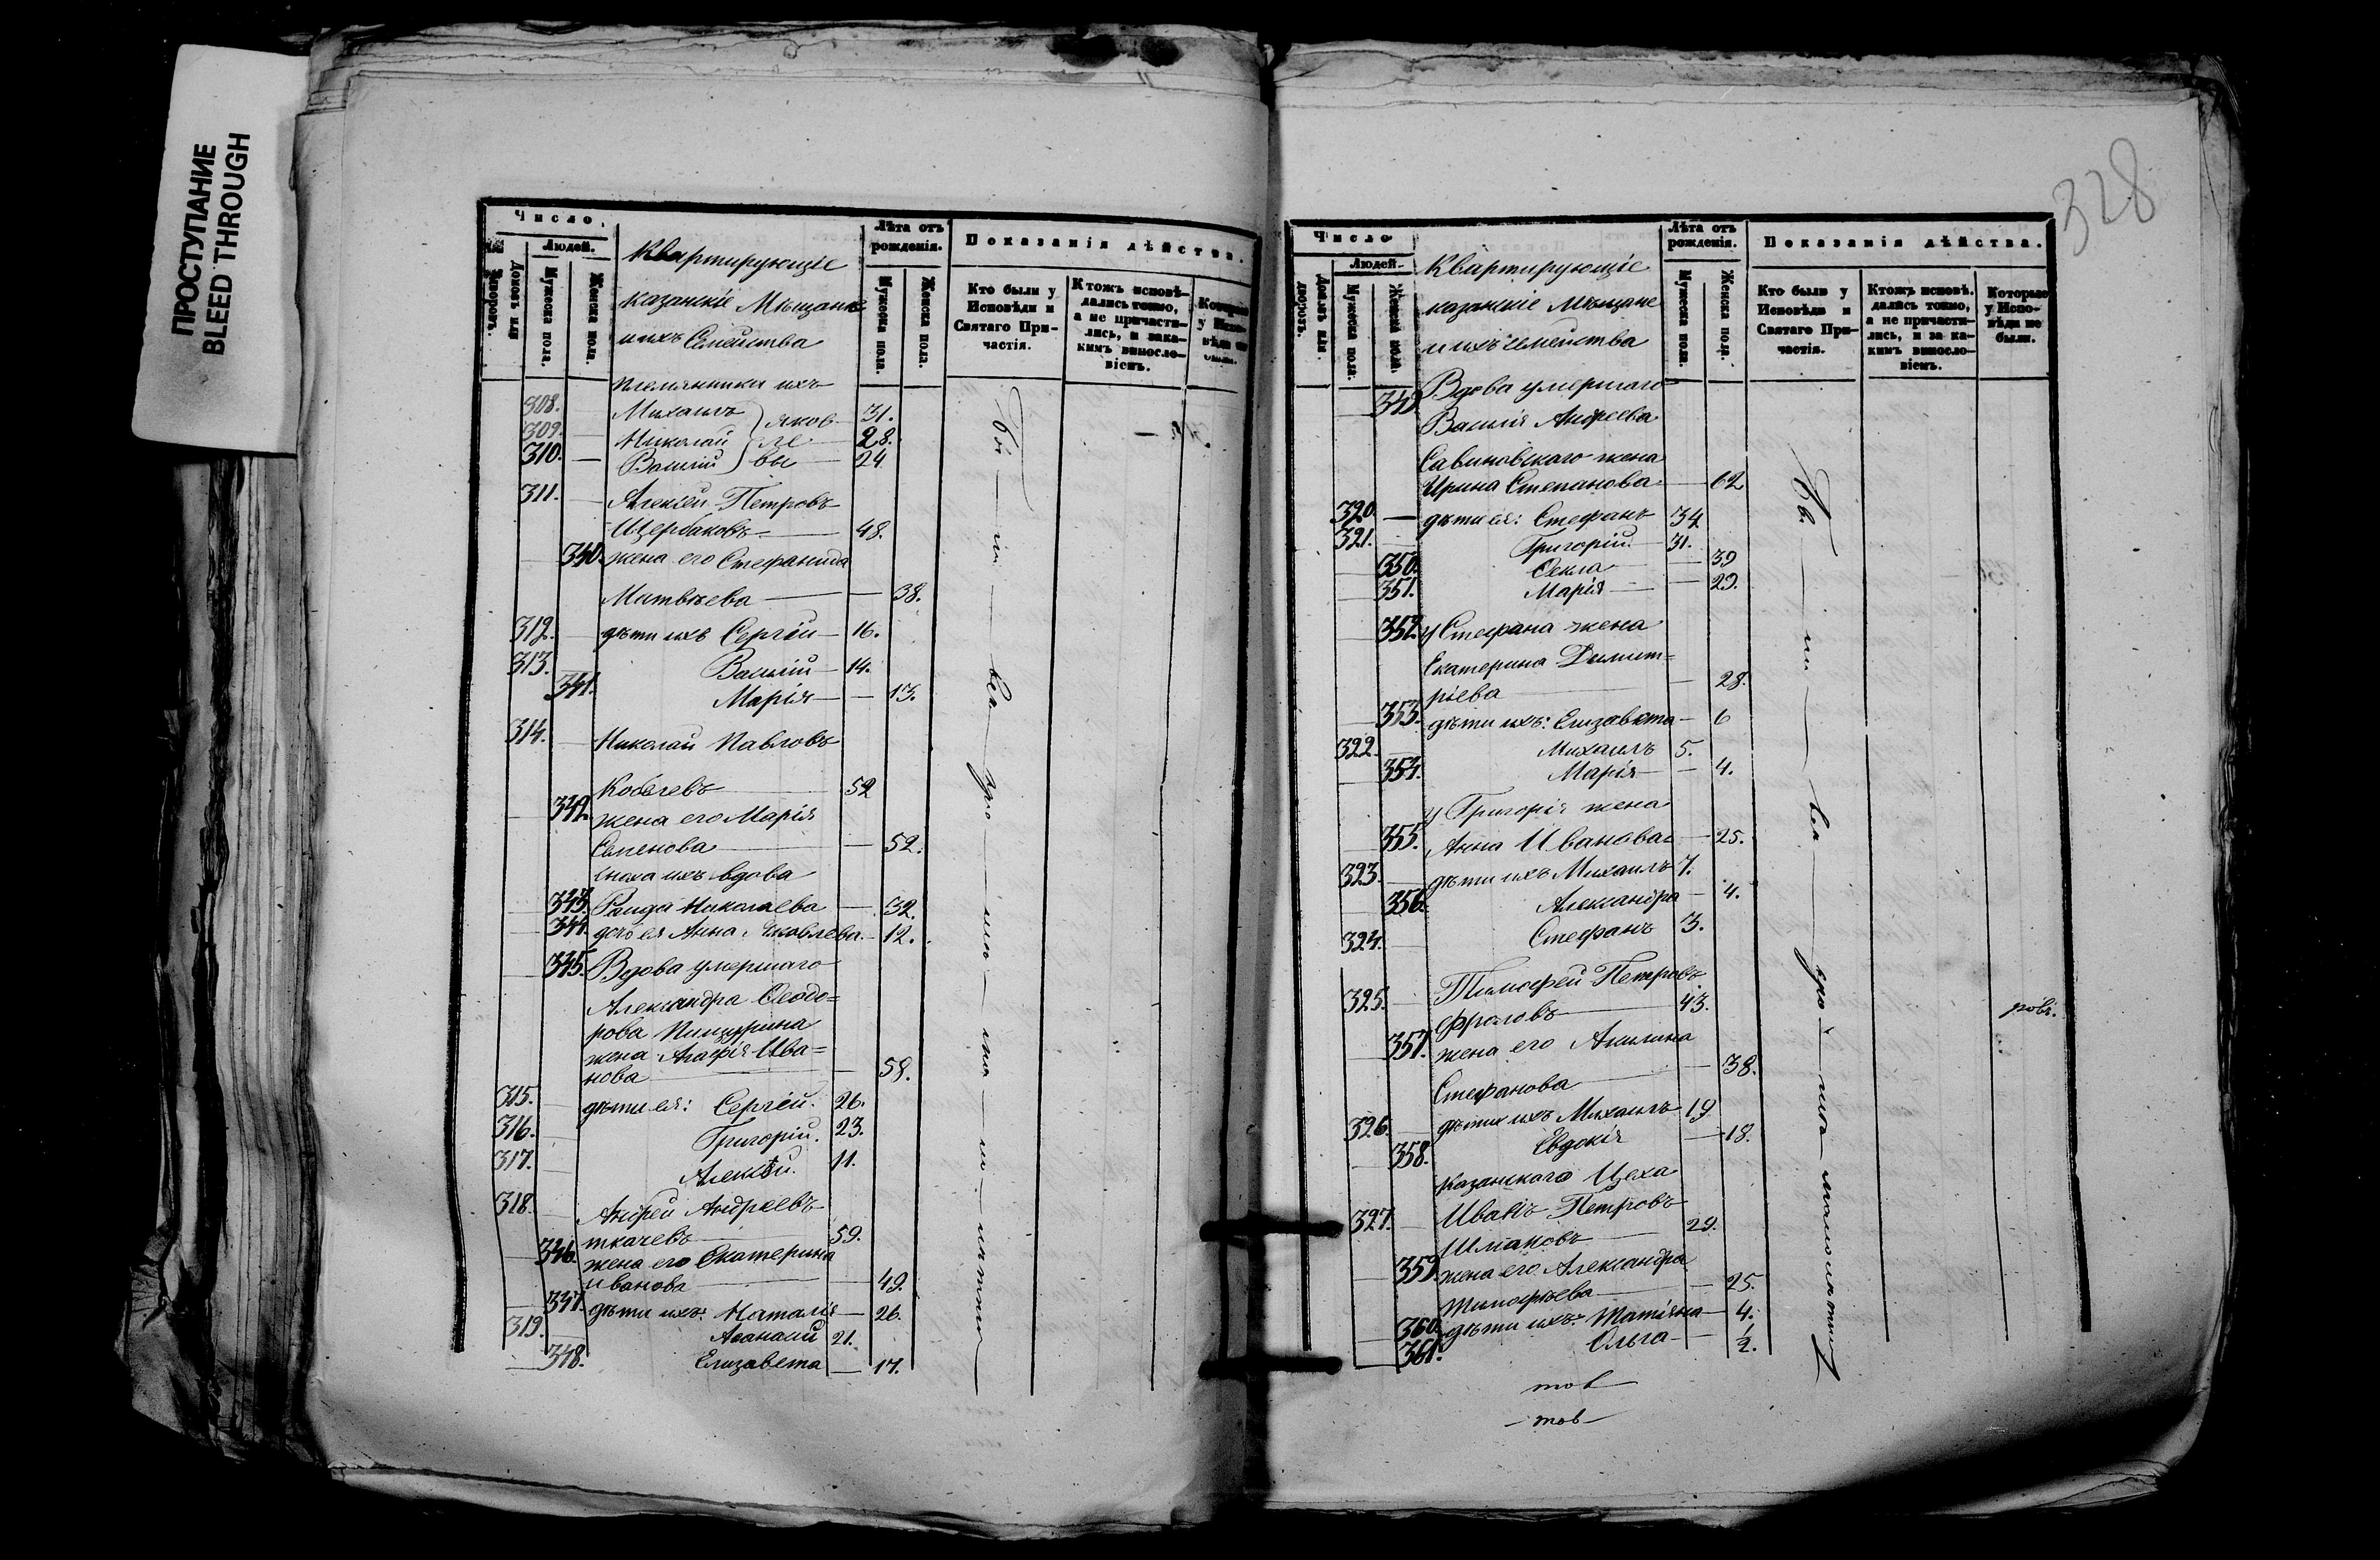 ПРОСТУПАНИЕ
BLEED THROUGH
Число
Людей.
Домовъ или Дворовъ.
Мужеска пола.
Женска пола.
Квартирующіе
казанскіе Мѣщане
и ихъ Семейства
Лѣта отъ рожденія.
Мужеска пола.
Женска пола.
Показанія дѣйства.
Кто были у Исповѣди и Святаго Причастія.
Ктожъ исповѣдались токмо, а не причастились, и за какимъ винословіемъ.
Которые у Исповѣди не были.
племянники ихъ
308. Михаилъ 31.
309. Николай 28.
310. Василій 24
Яков
ле
вы
311. Алексѣй Петровъ
Щербаковъ 48.
340. жена его Стефанида
Матвѣева 38.
312. дѣти ихъ Сергѣй 16.
313. Василій 14.
341. Марія 13.
314. Николай Павловъ
Кобелевъ 52
342. жена его Марія
Семенова 52.
сноха ихъ вдова
343. Раида Николаева 32.
344. дочь ея Анна Яковлева 12.
345. Вдова умершаго
Александра Ѳеодо=
рова
жена Агафія Ива=
нова 58.
315. дѣти ея: Сергѣй. 26.
316. Григорій. 23.
317. Алексѣй. 11.
318. Андрей Андреевъ
ткачевъ 59.
346. жена его Екатерина
Иванова 49.
347. дѣти ихъ: Наталія 26.
319. Аѳанасій 21.
348. Елизавета 17.
328
Число
Людей.
Домовъ или дворовъ.
Мужеска пола.
Женска пола.
Квартирующіе
казанскіе Мѣщане
и ихъ семейства
Лѣта отъ рожденія.
Мужеска пола.
Женска пола.
Показанія дѣйства.
Кто были у Исповѣди и Святаго Причастія.
Ктожъ исповѣдались токмо, а не причастились, и за какимъ винословіемъ.
Которые у Исповѣди не были.
349. Вдова умершаго
Василія Андреева
Савиновскаго жена
Ирина Степанова 62
320. дѣти ея: Стефанъ 34
321. Григорій 31.
350. Ѳекла 39
351. Марія 29.
352. у Стефана жена
Екатерина Димит=
ріева 28.
353. дѣти ихъ: Елизавета 6
322. Михаилъ 5.
354. Марія 4.
у Григорія жена
355. Анна Иванова 25.
323. дѣти ихъ Михаилъ 7.
356. Александра 4.
324. Стефанъ 3.
325. Тимофей Петровъ
Фроловъ 43.
357. жена его Акилина
Стефанова 38.
326. дѣти ихъ Михаилъ 19
358. Евдокія 18.
казанскаго Цеха
327. Иванъ Петровъ
Шлаковъ 29.
359. жена его Александра
Тимофѣева 25.
360. дѣти ихъ: Татіана 4.
361. Ольга ½.
тов
тов